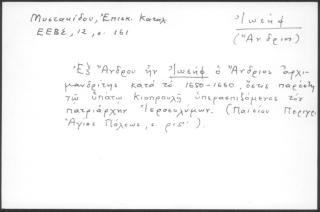 Μυστακίδου, Ἐπισκ. Κατάλ.
ΕΕΒΣ, 12, σ. 161
Ἰωσὴφ
(Ἄνδριος)
Ἐξ Ἄνδρου ἦν Ἰωσὴφ ὁ Ἄνδριος ἀρχι-
μανδρίτης κατὰ τὸ 1650-1660, ὅστις παρέστη
τῷ ὑπάτῳ Κιοπρουλῆ ὑπερασπιζόμενος τὸν
πατριάρχην Ἱεροσολύμων. (Παϊσίου Περιγρ.
Ἁγίας Πόλεως, σ. ριδ΄).